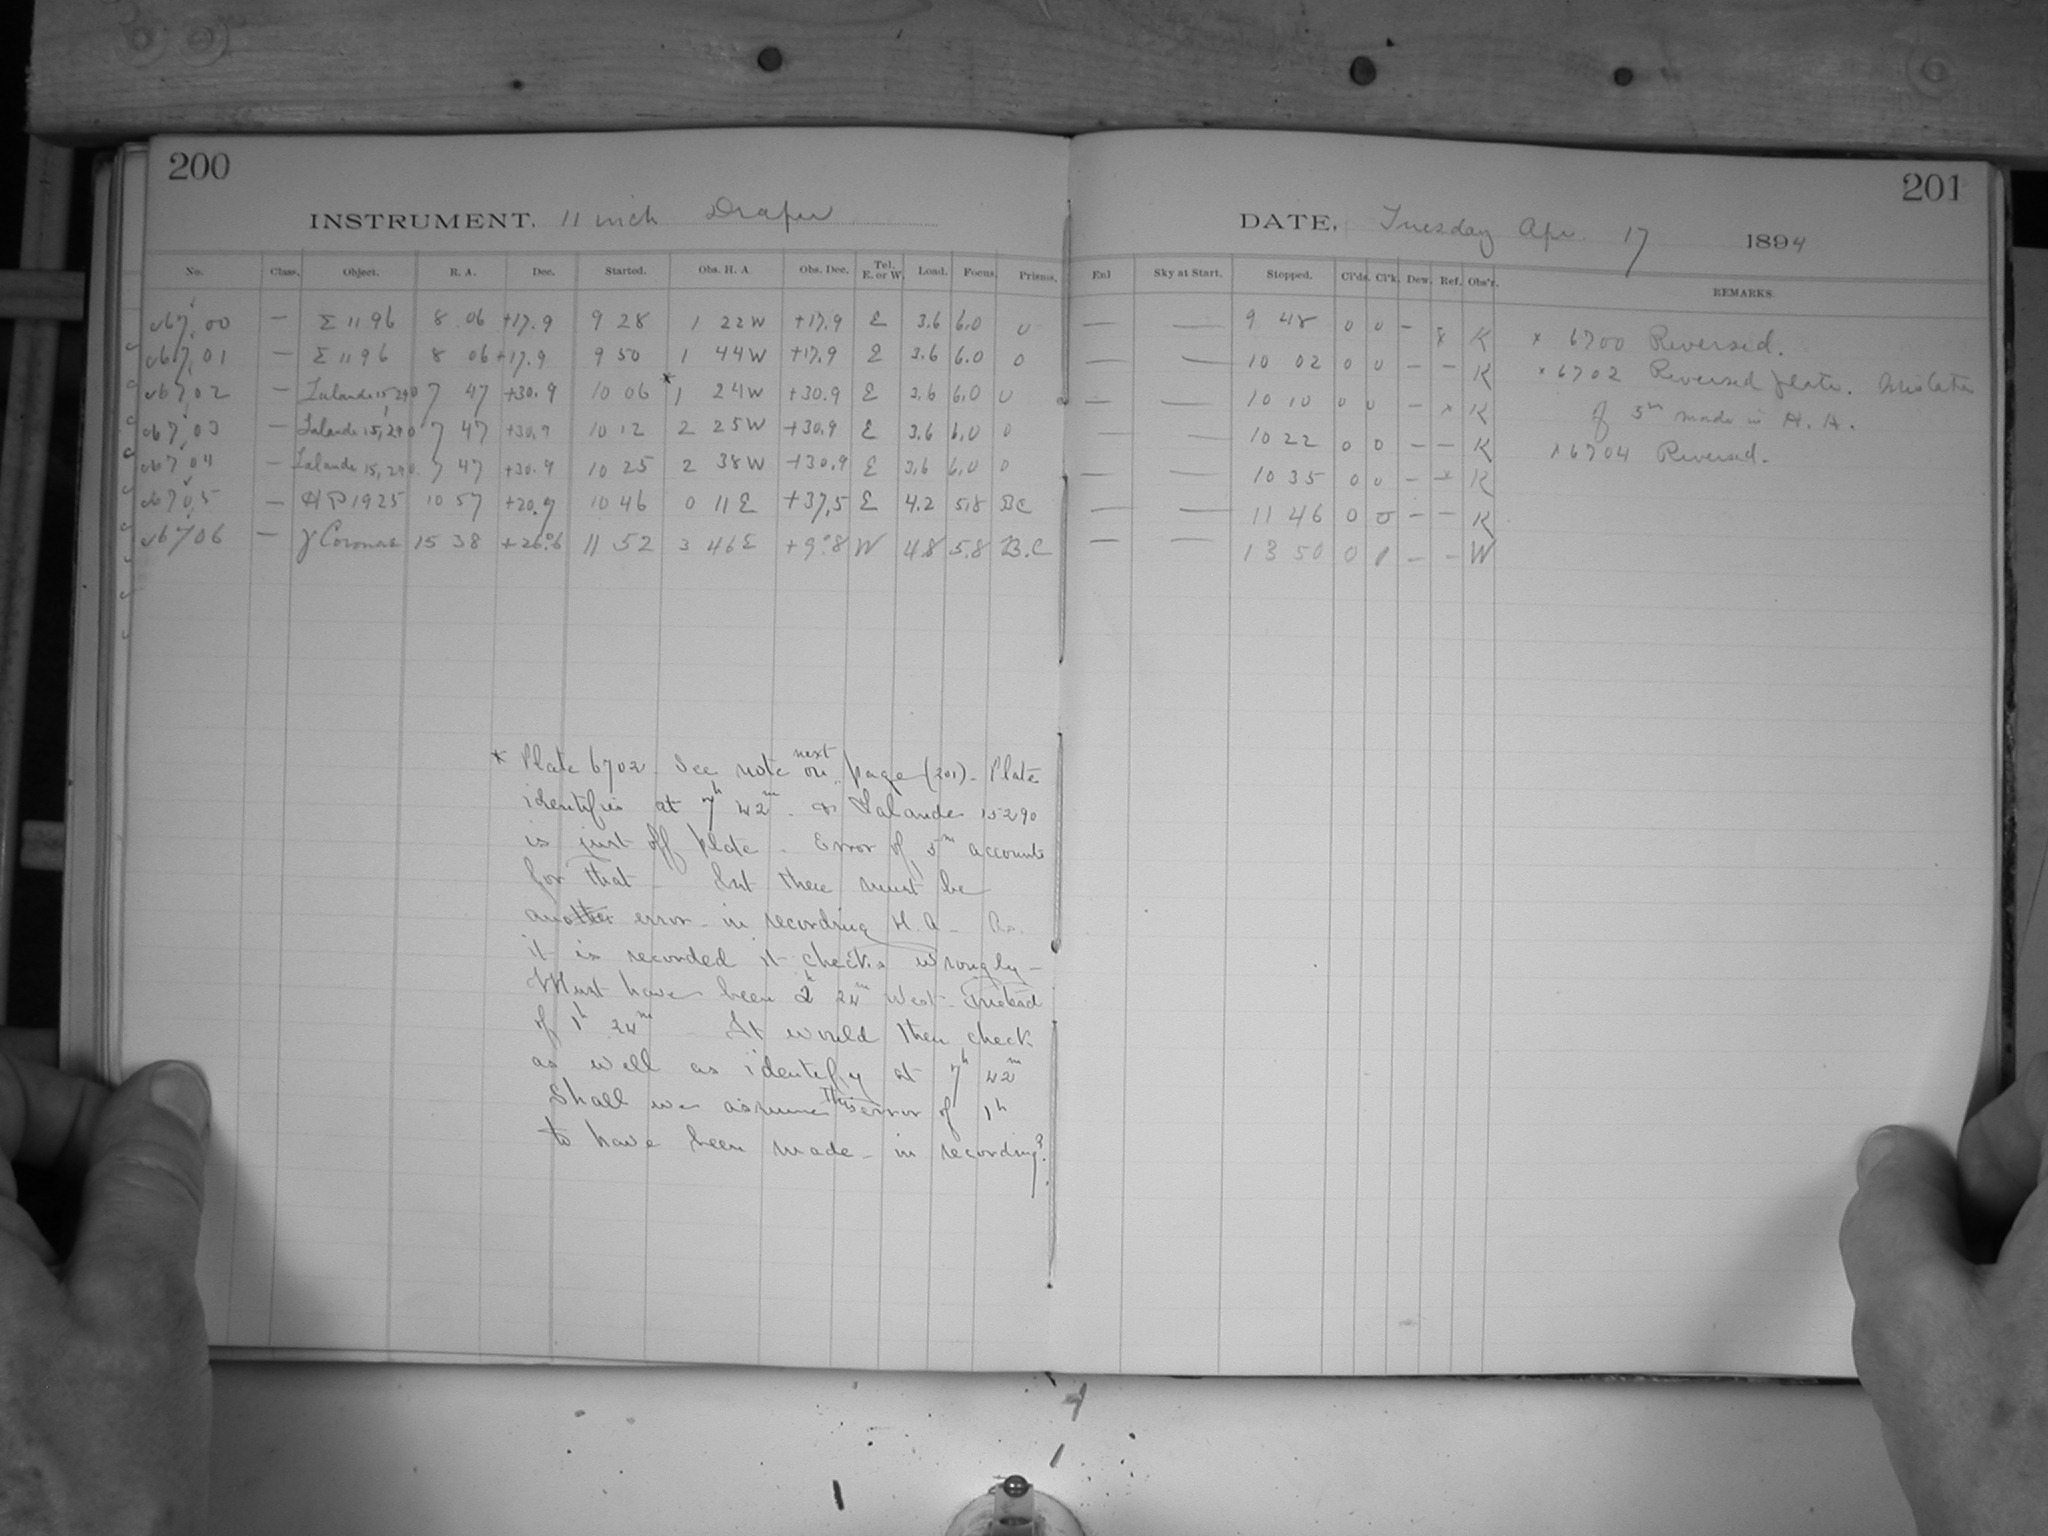 200
INSTRUMENT. 11 inch Draper
No. Class. Object. R. A. Dec. Started. Obs. H. A. Obs. Dec. Tel. E. or W. Load. Focus. Prisms.
6700 — Σ 1196 8 06 +17.9 9 28 1 22 W +17.9 E 3.6 6.0 0
6701 — Σ 1196 8 06 +17.9 9 50 1 44 W +17.9 E 3.6 6.0 0
6702 — Lalande 15290 7 47 +30.9 10 06 * 1 24 W +30.9 E 3.6 6.0 0
6703 — Lalande 15,290 7 47 +30.9 10 12 2 25 W +30.9 E 3.6 6.0 0
6704 — Lalande 15,290. 7 47 +30.9 10 25 2 38 W +30.9 E 3.6 6.0 0
6705 — HP 1925 10 57 +20.7 10 46 0 11 E +37.5 E 4.2 5.8 BC
6706 — γ Coronae 15 38 +26°.6 11 52 3 46 E +9°.8 W 4.8 5.8 B.C
* Plate 6702. See note on next page (201). Plate
identifies at 7h 42m. Lalande 15290
is just off plate. Error of 5m accounts
for that — but there must be
another error — in recording H.A. — As
it is recorded it checks wrongly —
Must have been 2h 24m West — instead
of 1h 24m — It would then check
as well as identify at 7h 42m
Shall we assume this error of 1h
to have been made — in recording?
201
DATE. Tuesday Apr. 17 1894
Enl Sky at Start. Stopped. Cl'ds. Cl'k. Dew. Ref. Obs'r. REMARKS.
— — 9 48 0 0 – x K x 6700 Reversed.
— — 10 02 0 0 – – K x 6702 Reversed plate. Mistake
— — 10 10 0 0 – x K of 5m made in H. A.
— — 10 22 0 0 – – K x 6704 Reversed.
— — 10 35 0 0 – x K
— — 11 46 0 0 – – K
— — 13 50 0 0 – – W